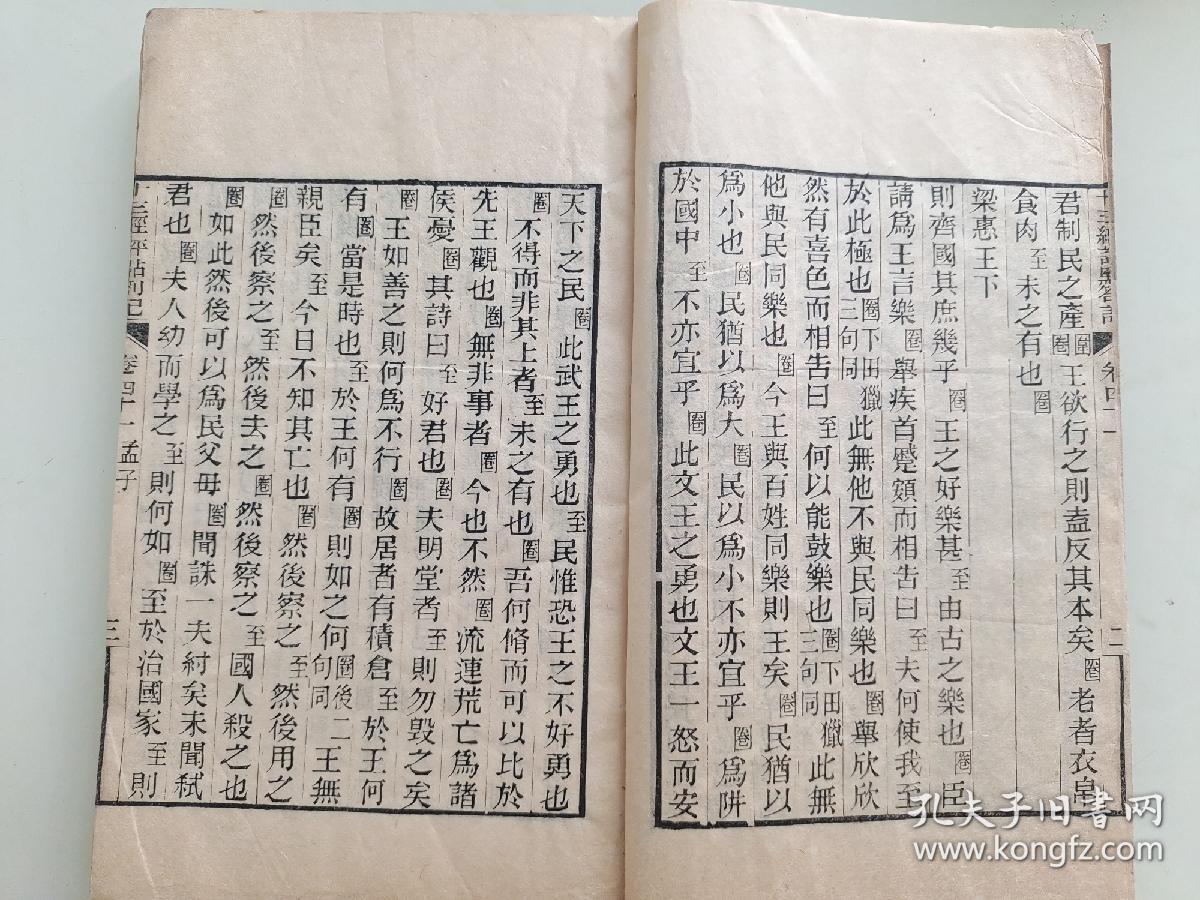 十三經評點劄記 卷四十一 二
君制民之產圈王欲行之則盍反其本矣圈老者衣皂
食肉至未之有也圈
梁惠王下
則齊國其庶幾乎圈王之好樂甚至由古之樂也圈臣
請爲王言樂圈舉疾首蹙頞而相告曰至夫何使我至
於此極也圈下田獵三句同此無他不與民同樂也圈舉欣欣
然有喜色而相告曰至何以能鼓樂也圈下田獵三句同此無
他與民同樂也圈今王與百姓同樂則王矣圈民猶以
爲小也圈民猶以爲大圈民以爲小不亦宜乎圈爲阱
於國中至不亦宜乎圈此文王之勇也文王一怒而安
天下之民圈此武王之勇也至民惟恐王之不好勇也
圈不得而非其上者至未之有也圈吾何脩而可以比於
先王觀也圈無非事者圈今也不然圈流連荒亡爲諸
侯憂圈其詩曰至好君也圈夫明堂者至則勿毀之矣
圈王如善之則何爲不行圈故居者有積倉至於王何
有圈當是時也至於王何有圈則如之何圈後二句同王無
親臣矣至今日不知其亡也圈然後察之至然後用之
圈然後察之至然後去之圈然後察之至國人殺之也
圈如此然後可以爲民父母圈聞誅一夫紂矣未聞弒
君也圈夫人幼而學之至則何如圈至於治國家至則
十三經評點劄記 卷四十一 孟子 三
孔夫子旧书网
www.kongfz.com